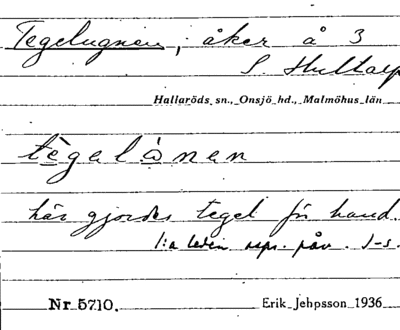 Tegelugnen; åker å 3
S. Hultarp
Hallaröds sn., Onsjö hd., Malmöhus län
tègelånen
här gjordes tegel för hand.
1:a leden
Nr 5710. Erik Jehpsson 1936